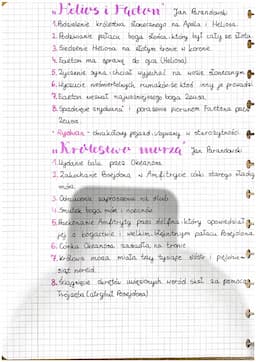 "Helios i Faeton" Jan Parandowski
1. Podzielenie królestwa słonecznego na Apola i Heliosa.
2. Podziwianie pałacu boga słońca, który był cały ze złota.
3. Siedzenie Heliosa na złotym tronie w koronie.
4. Faeton ma sprawę do ojca (Heliosa)
5. Życzenie syna - chciał wyjechać na wozie słonecznym.
6. Wyczucie nieśmiertelnych rumaków, że ktoś inny je prowadzi
7. Faeton wezwał najważniejszego boga Zeusa.
8. Spadnięcie rydwanu i porażenie piorunem Faetona przez
Zeusa.
- Rydwan - dwukołowy pojazd używany w starożytności
"Królestwo morza" Jan Parandowski
1. Wydanie balu przez Okeanosa.
2. Zakochanie Posejdona w Amfitrycie córki starego władcy
mórz.
3. Odrzucenie zaproszenia na ślub
4. Smutek boga mórz i oceanów
5. Przekonanie Amfitryty przez delfina, który opowiedział
jej o bogactwie i wielkim, błękitnym pałacu Posejdona.
6. Córka Okeanosa zasiadła na tronie.
7. Królowa morza miała trzy tysiące sióstr i pięćdzie-
siąt nereid.
8. Ściągnięcie okrętów uwięzionych wśród skał za pomocą
trójzęba (atrybut Posejdona)